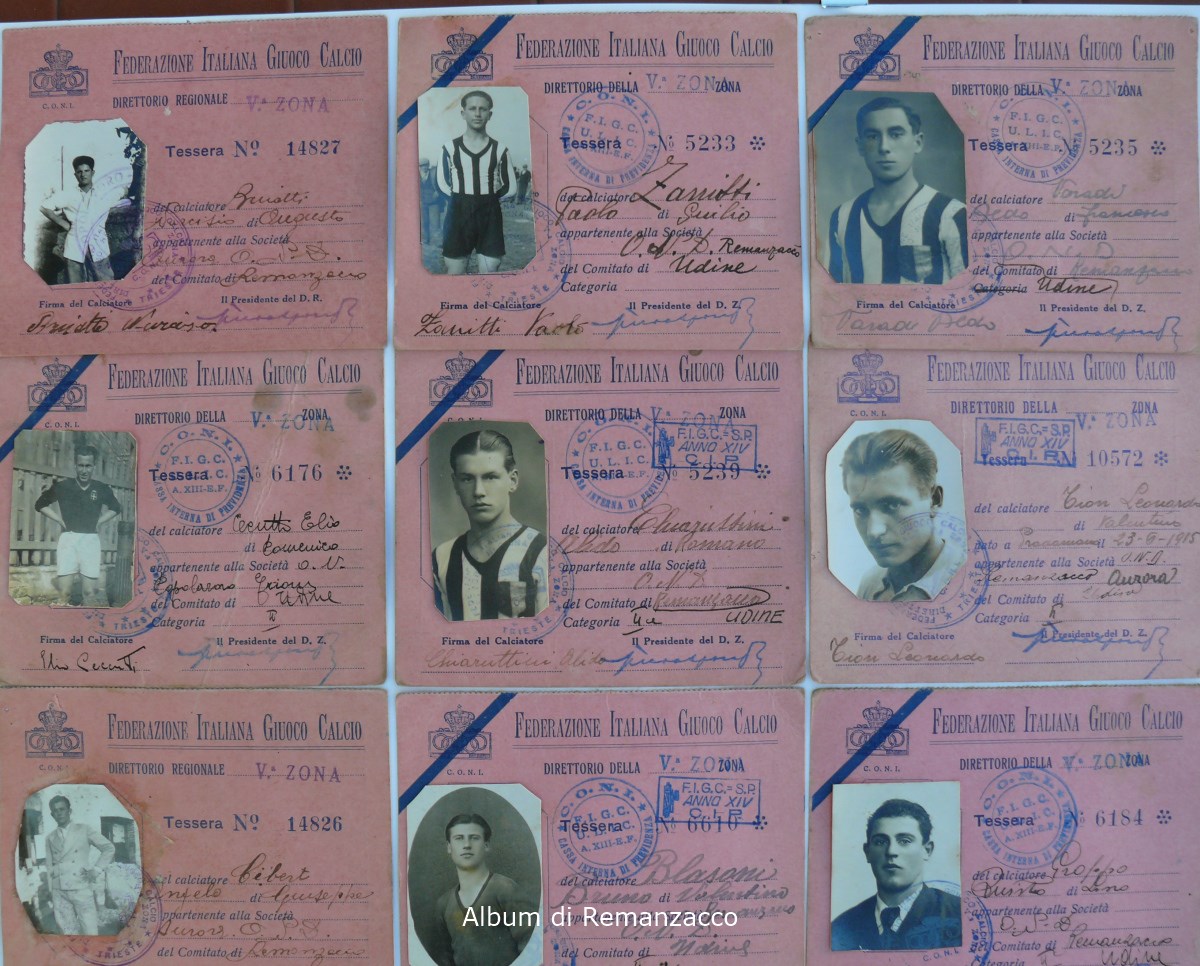 FEDERAZIONE ITALIANA GIUOCO CALCIO
C. O. N. I.
DIRETTORIO REGIONALE V.ª ZONA
Tessera Nº 14827
del calciatore
di Augusto
appartenente alla Società
Aurora O.
del Comitato di Remanzacco
Firma del Calciatore Il Presidente del D. R.
FEDERAZIONE ITALIANA GIUOCO CALCIO
DIRETTORIO DELLA V.ª ZONA ZONA
C. O. N. I.
F. I. G. C.
U. L. I. C.
A. XIII-E.F.
CASSA INTERNA DI PREVIDENZA
Tessera Nº 5233
del calciatore Zanitti
Paolo di Giulio
appartenente alla Società
O. N. D. Remanzacco
del Comitato di Udine
Categoria
Firma del Calciatore Il Presidente del D. Z.
Zanitti Paolo
FEDERAZIONE ITALIANA GIUOCO CALCIO
C. O. N. I.
DIRETTORIO DELLA V.ª ZONA ZONA
C. O. N. I.
F. I. G. C.
U. L. I. C.
XIII-E.F.
CASSA INTERNA DI PREVIDENZA
Tessera 5235
del calciatore
di Francesco
appartenente alla Società
O N D
Remanzacco
del Comitato di
Categoria Udine
Firma del Calciatore Il Presidente del D. Z.
FEDERAZIONE ITALIANA GIUOCO CALCIO
DIRETTORIO DELLA V.ª ZONA ZONA
C. O. N. I.
F. I. G. C.
A. XIII-E.F.
CASSA INTERNA DI PREVIDENZA
Tessera Nº 6176
del calciatore Cecutti Elio
di Domenico
appartenente alla Società
del Comitato di Udine
Categoria II
Firma del Calciatore Il Presidente del D. Z.
Elio Cecutti
FEDERAZIONE ITALIANA GIUOCO CALCIO
DIRETTORIO DELLA V.ª ZONA ZONA
C. O. N. I.
F. I. G. C.
U. L. I. C.
CASSA INTERNA DI PREVIDENZA
F.I.G.C.=S.P.
ANNO XIV
C.I.P.
Tessera Nº 5239
del calciatore Chiaruttini
Olido di Romano
appartenente alla Società
O. N. D.
del Comitato di Remanzacco
Categoria UDINE
Chiaruttini Olido
FEDERAZIONE ITALIANA GIUOCO CALCIO
C. O. N. I.
DIRETTORIO DELLA ZONA
V.ª ZONA
F.I.G.C.=S.P.
ANNO XIV
C.I.P.
Tessera N 10572
del calciatore Tion Leonardo
di Valentino
nato a il 23-9-1915
appartenente alla Società O.N.D.
Remanzacco Aurora
del Comitato di Udine
Categoria II
Firma del Calciatore Il Presidente del D. Z.
Tion Leonardo
FEDERAZIONE ITALIANA GIUOCO CALCIO
DIRETTORIO REGIONALE V.ª ZONA
Tessera Nº 14826
del calciatore Cibert
Angelo di Giuseppe
appartenente alla Società
Aurora O.
del Comitato di Remanzacco
FEDERAZIONE ITALIANA GIUOCO CALCIO
C. O. N. I.
DIRETTORIO DELLA V.ª ZONA ZONA
C. O. N. I.
F. I. G. C.
U. L. I. C.
A. XIII-E.F.
CASSA INTERNA DI PREVIDENZA
F.I.G.C.=S.P.
ANNO XIV
C.I.P.
Tessera Nº 6610
del calciatore Blasoni
Bruno di Valentino
appartenente alla Società
O. N. D.
del Comitato di Udine
FEDERAZIONE ITALIANA GIUOCO CALCIO
C. O. N. I.
DIRETTORIO DELLA V.ª ZONA ZONA
C. O. N. I.
F. I. G. C.
U. L. I. C.
A. XIII-E.F.
CASSA INTERNA DI PREVIDENZA
Tessera Nº 6184
del calciatore Groppo
Quinto di Lino
appartenente alla Società
O. N. D.
del Comitato di Remanzacco
Categoria Udine
Album di Remanzacco